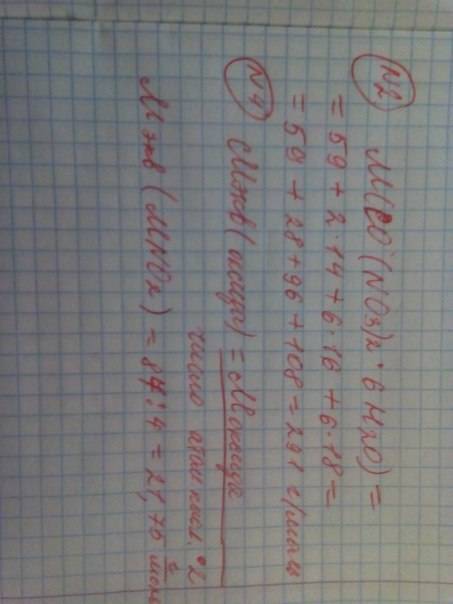 N2 M(CO(NO3)2 · 6H2O) =
= 59 + 2 14 + 6·16 + 6·18 =
= 59 + 28 + 96 + 108 = 291 г/моль
N4 Mэкв(оксида) = Mоксида
число атом кисл. · 2
Mэкв (MnO2) = 87 : 4 = 21,75 г моль